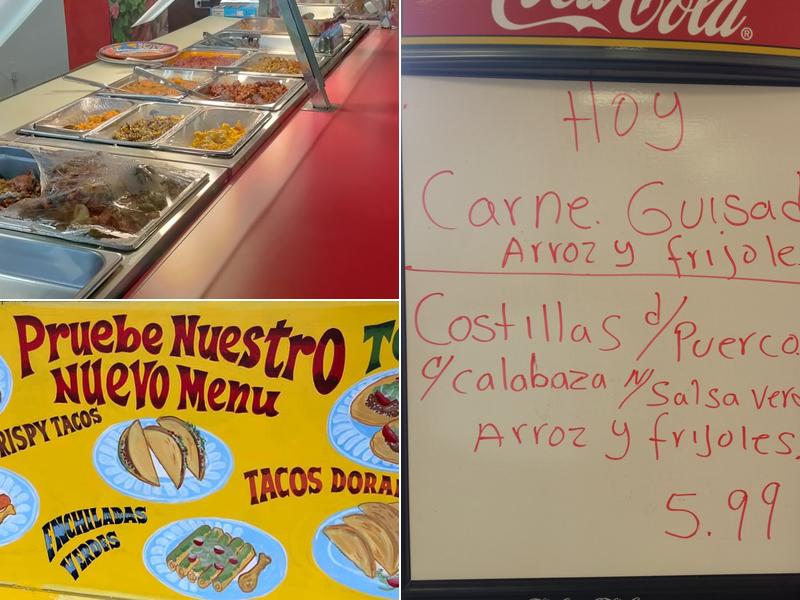 Pruebe Nuestro
Nuevo Menu
RISPY TACOS
TACOS DORA
ENCHILADAS
VERDES
Coca-Cola
Hoy
Carne. Guisad
Arroz y frijole
Costillas d/Puerco
c/calabaza N/Salsa verd
Arroz y frijoles.
5.99